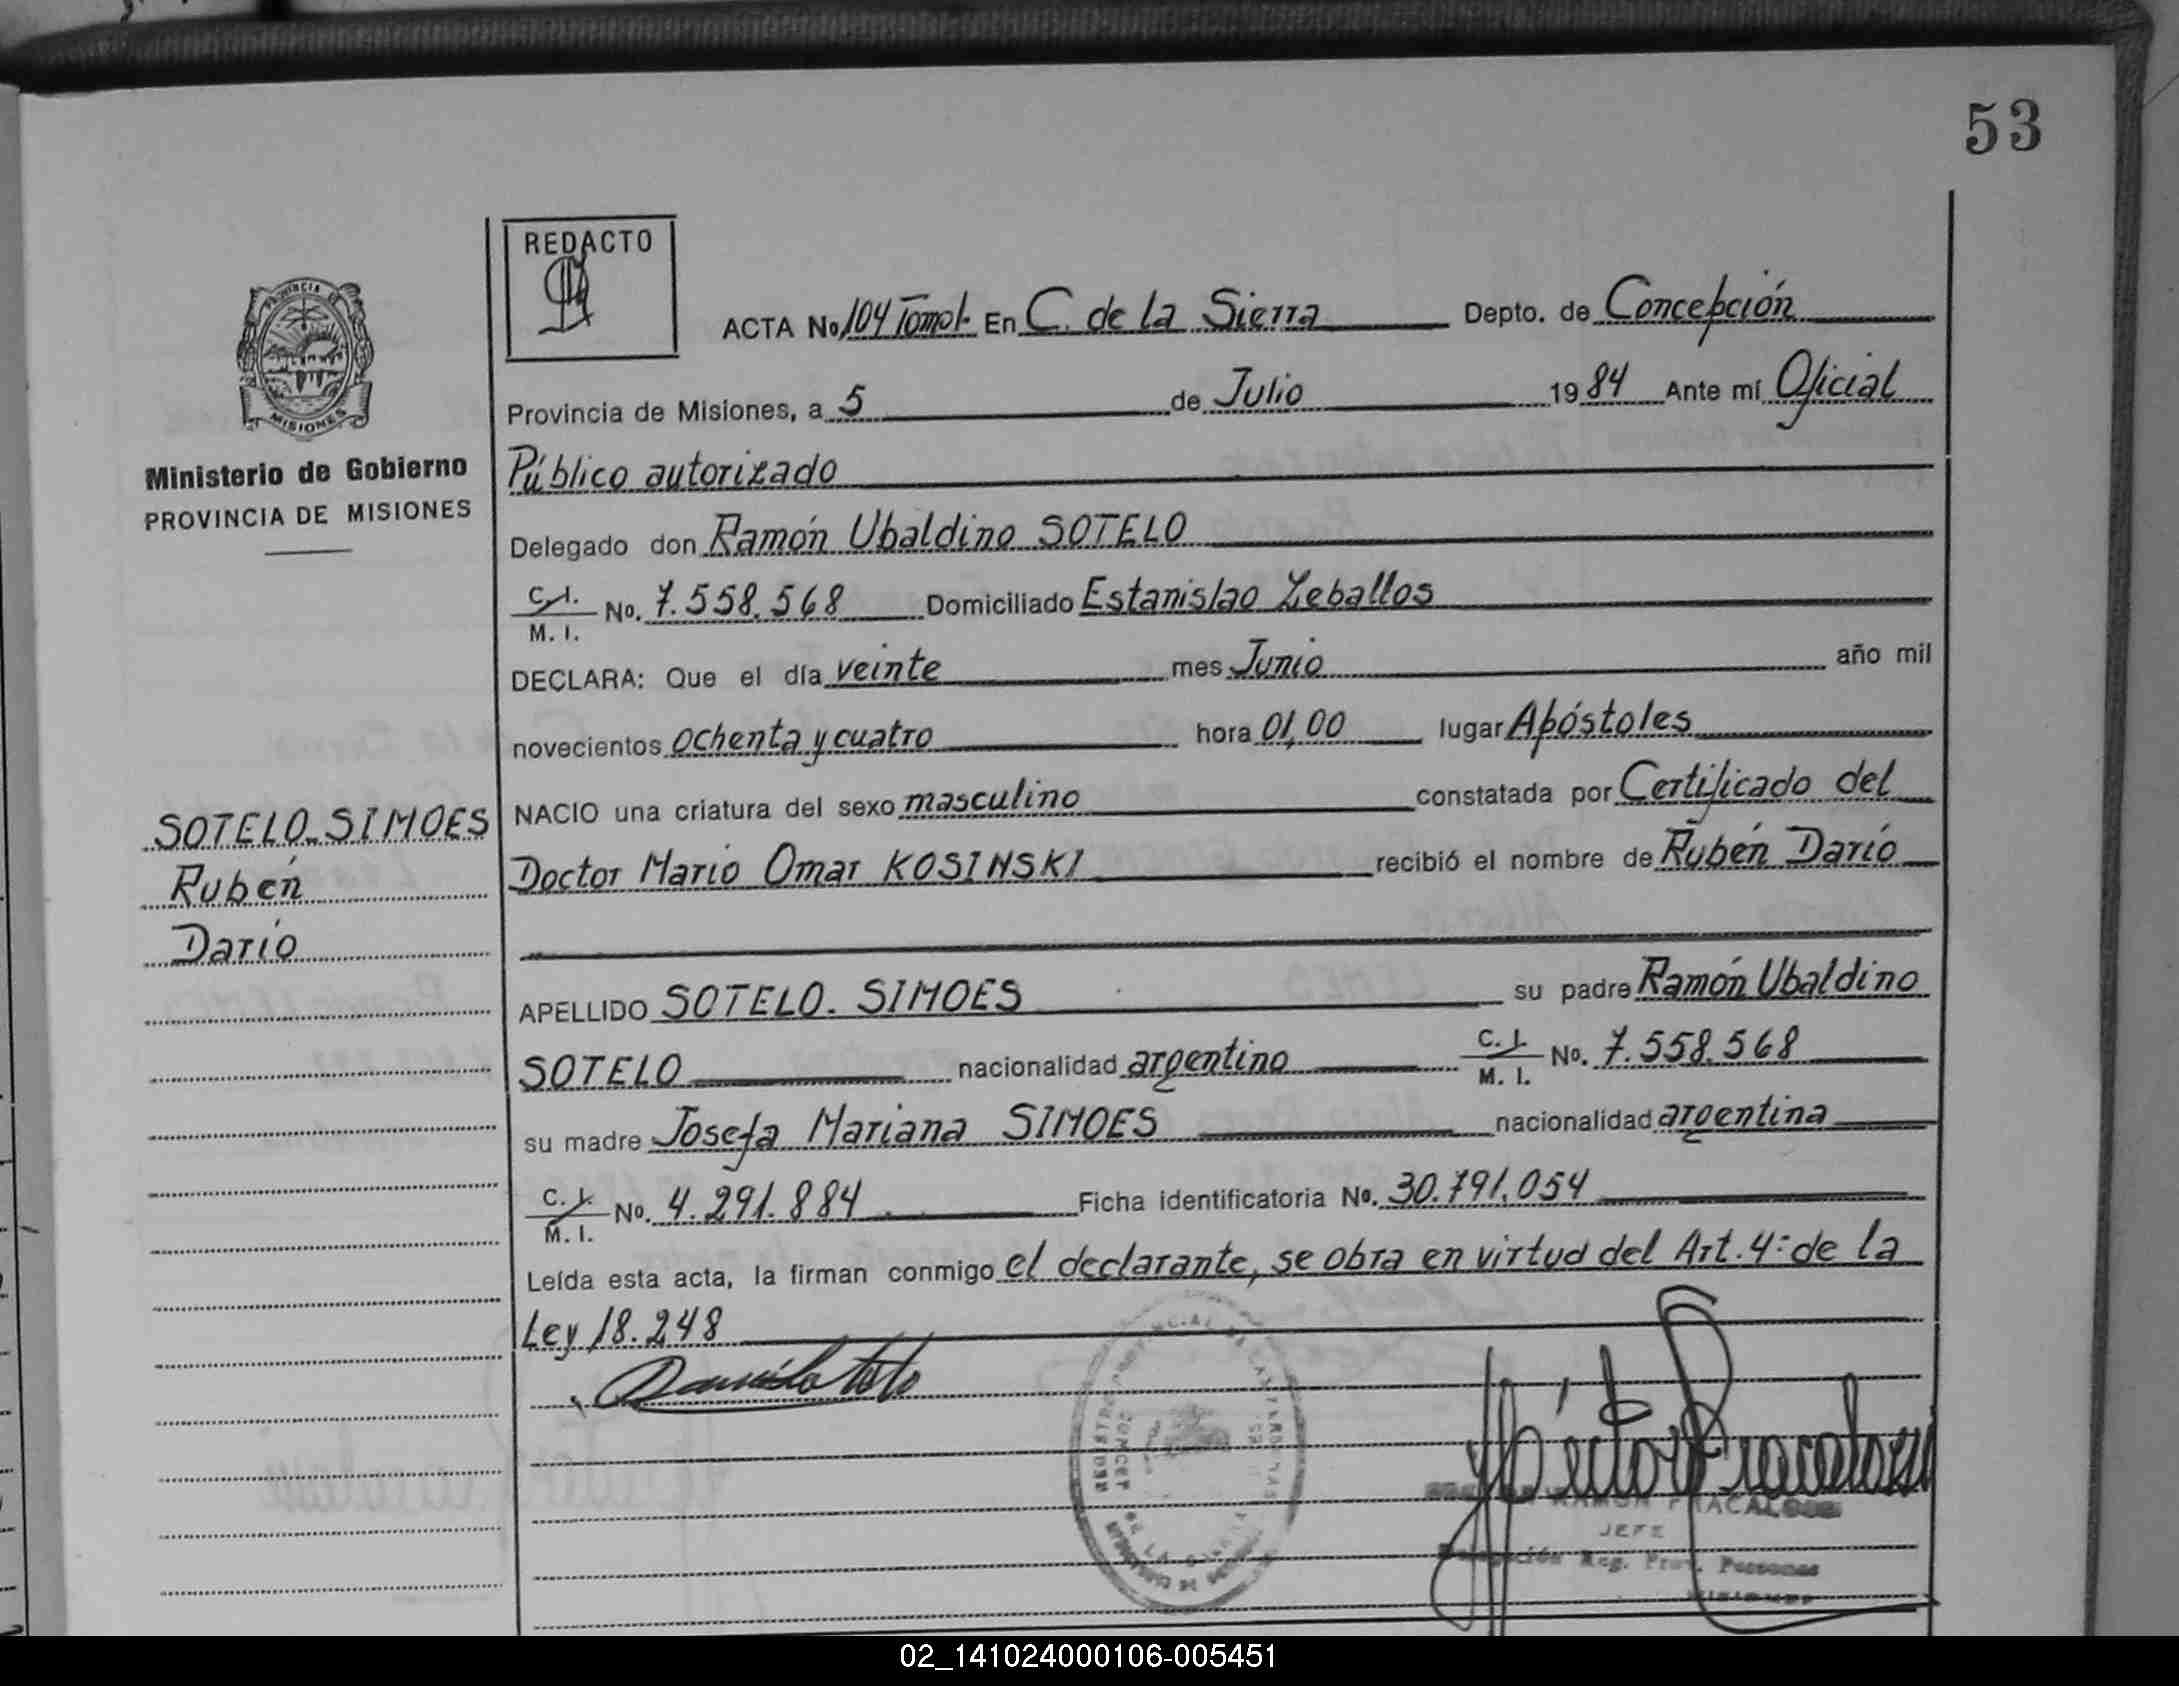 53
REDACTO
ACTA No. 104 Tomo I En C. de la Sierra Depto. de Concepción
Provincia de Misiones, a 5 de Julio 1984 Ante mí Oficial
Público autorizado
Delegado don Ramón Ubaldino SOTELO
C. I.
M. I. No. 7.558.568 Domiciliado Estanislao Zeballos
DECLARA: Que el día veinte mes Junio año mil
novecientos ochenta y cuatro hora 01,00 lugar Apóstoles
NACIO una criatura del sexo masculino constatada por Certificado del
Doctor Mario Omar KOSINSKI recibió el nombre de Rubén Darío
APELLIDO SOTELO. SIMOES su padre Ramón Ubaldino
SOTELO nacionalidad argentino C. I.
M. I. No. 7.558.568
su madre Josefa Mariana SIMOES nacionalidad argentina
C. I.
M. I. No. 4.291.884 Ficha identificatoria No. 30.791.054
Leída esta acta, la firman conmigo el declarante, se obra en virtud del Art. 4: de la
Ley 18.248
PROVINCIA DE
MISIONES
Ministerio de Gobierno
PROVINCIA DE MISIONES
SOTELO-SIMOES
Rubén
Darío
RAMON FRACALOSSI
JEFE
Delegación Reg. Prov. Personas
02_141024000106-005451